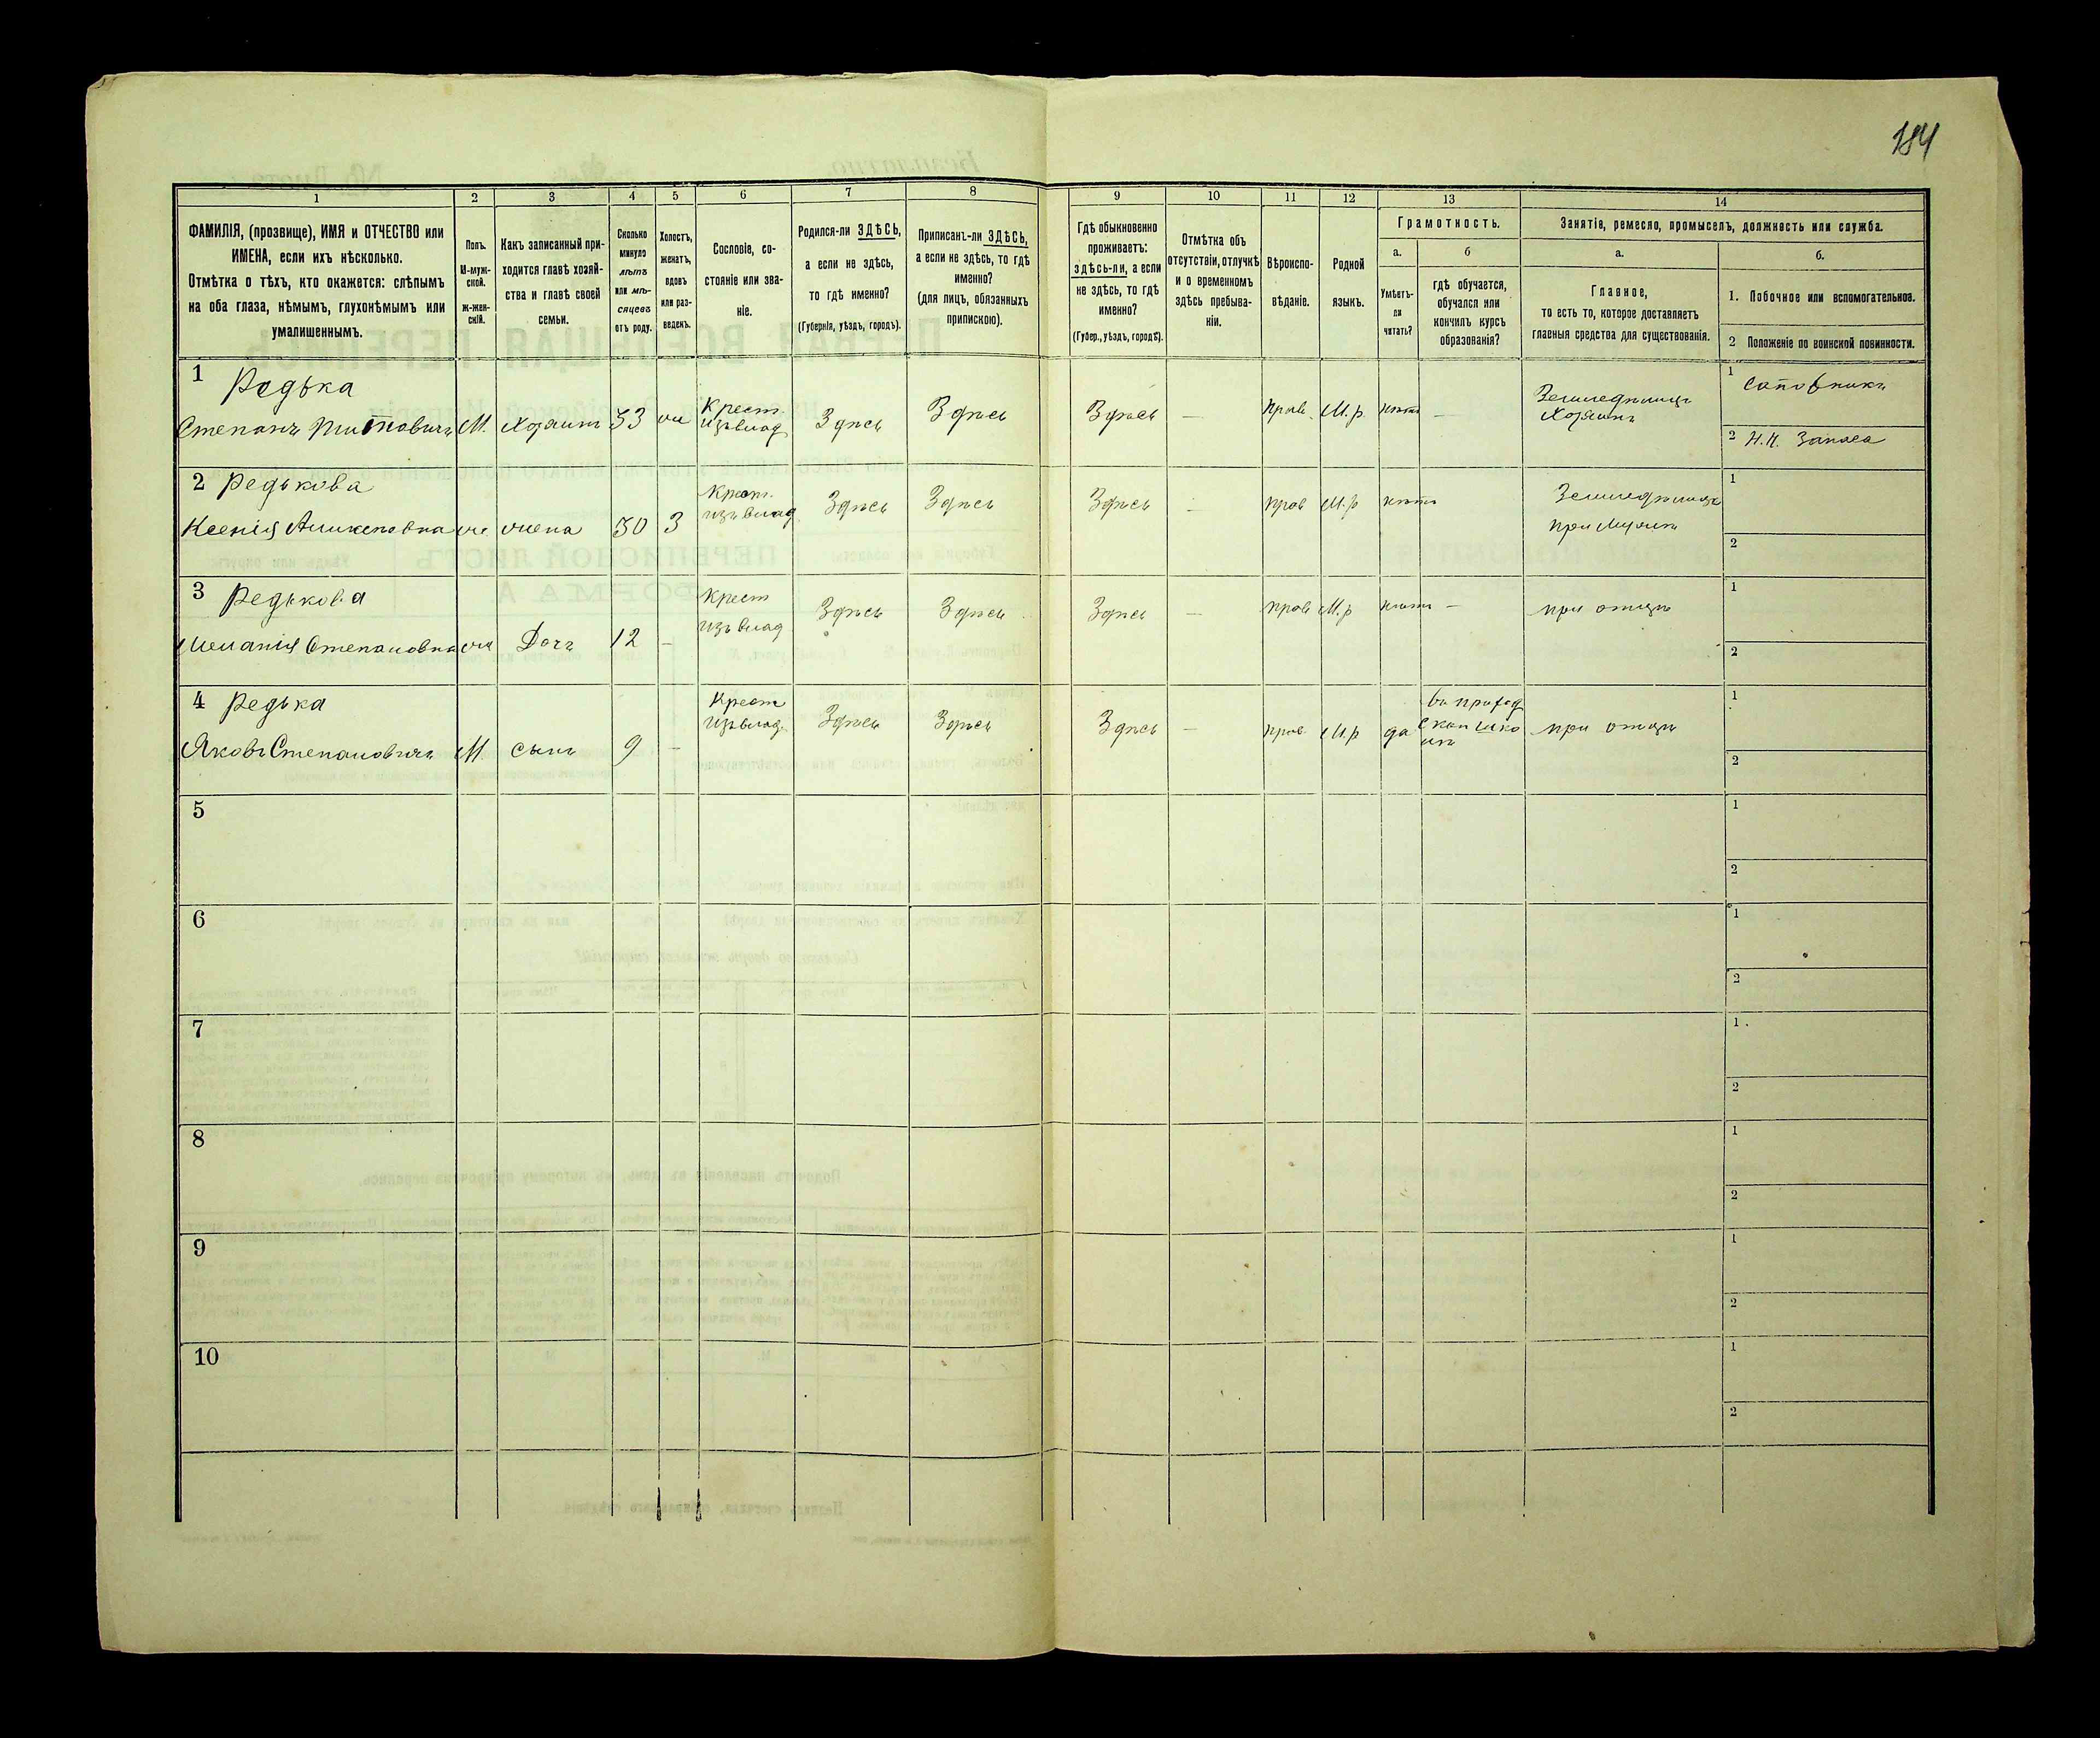 184
1 2 3 4 5 6 7 8 9 10 11 12 13 14
ФАМИЛІЯ, (прозвище), ИМЯ и ОТЧЕСТВО или
ИМЕНА, если ихъ нѣсколько.
Отмѣтка о тѣхъ, кто окажется: слѣпымъ
на оба глаза, нѣмымъ, глухонѣмымъ или
умалишеннымъ.
Полъ.
М-муж-
ской.
ж-жен-
скій.
Какъ записанный при-
ходится главѣ хозяй-
ства и главѣ своей
семьи.
Сколько
минуло
лѣтъ
или мѣ-
сяцевъ
отъ роду.
Холостъ,
женатъ,
вдовъ
или раз-
веденъ.
Сословіе, со-
стояніе или зва-
ніе.
Родился-ли ЗДѢСЬ,
а если не здѣсь,
то гдѣ именно?
(Губернія, уѣздъ, городъ).
Приписанъ-ли ЗДѢСЬ,
а если не здѣсь, то гдѣ
именно?
(для лицъ, обязанныхъ
припискою).
Гдѣ обыкновенно
проживаетъ:
здѣсь-ли, а если
не здѣсь, то гдѣ
именно?
(Губер., уѣздъ, городъ).
Отмѣтка объ
отсутствіи, отлучкѣ
и о временномъ
здѣсь пребыва-
ніи.
Вѣроиспо-
вѣданіе.
Родной
языкъ.
Грамотность.
а.
Умѣетъ-
ли
читать?
б
гдѣ обучается,
обучался или
кончилъ курсъ
образованія?
Занятія, ремесло, промыселъ, должность или служба.
а.
Главное,
то есть то, которое доставляетъ
главныя средства для существованія.
б.
1. Побочное или вспомогательное.
2 Положеніе по воинской повинности.
1 Редька
Степанъ М. Хозяинъ 53 ж Крест.
изъ влад Здѣсь Здѣсь Здѣсь — прав. М.р. нѣтъ — Земледѣлецъ
Хозяинъ
1 Сапожникъ
2 Н.К. Запаса
2 Редькова
Ксенія ж. жена 50 З Крест.
изъ влад Здѣсь Здѣсь Здѣсь — прав М.р нѣтъ
1
2
3 Редькова
Меланія Степановна ж Дочь 12 — Крест
изъ влад Здѣсь Здѣсь Здѣсь — прав М.р нѣтъ — при отцѣ
1
2
4 Редька
Яковъ Степановичъ М сынъ 9 — Крест
изъ влад. Здѣсь Здѣсь Здѣсь — прав М.р да въ приход
ской шко
лѣ при отцѣ
1
2
5
1
2
6
1
2
7
1
2
8
1
2
9
1
2
10
1
2